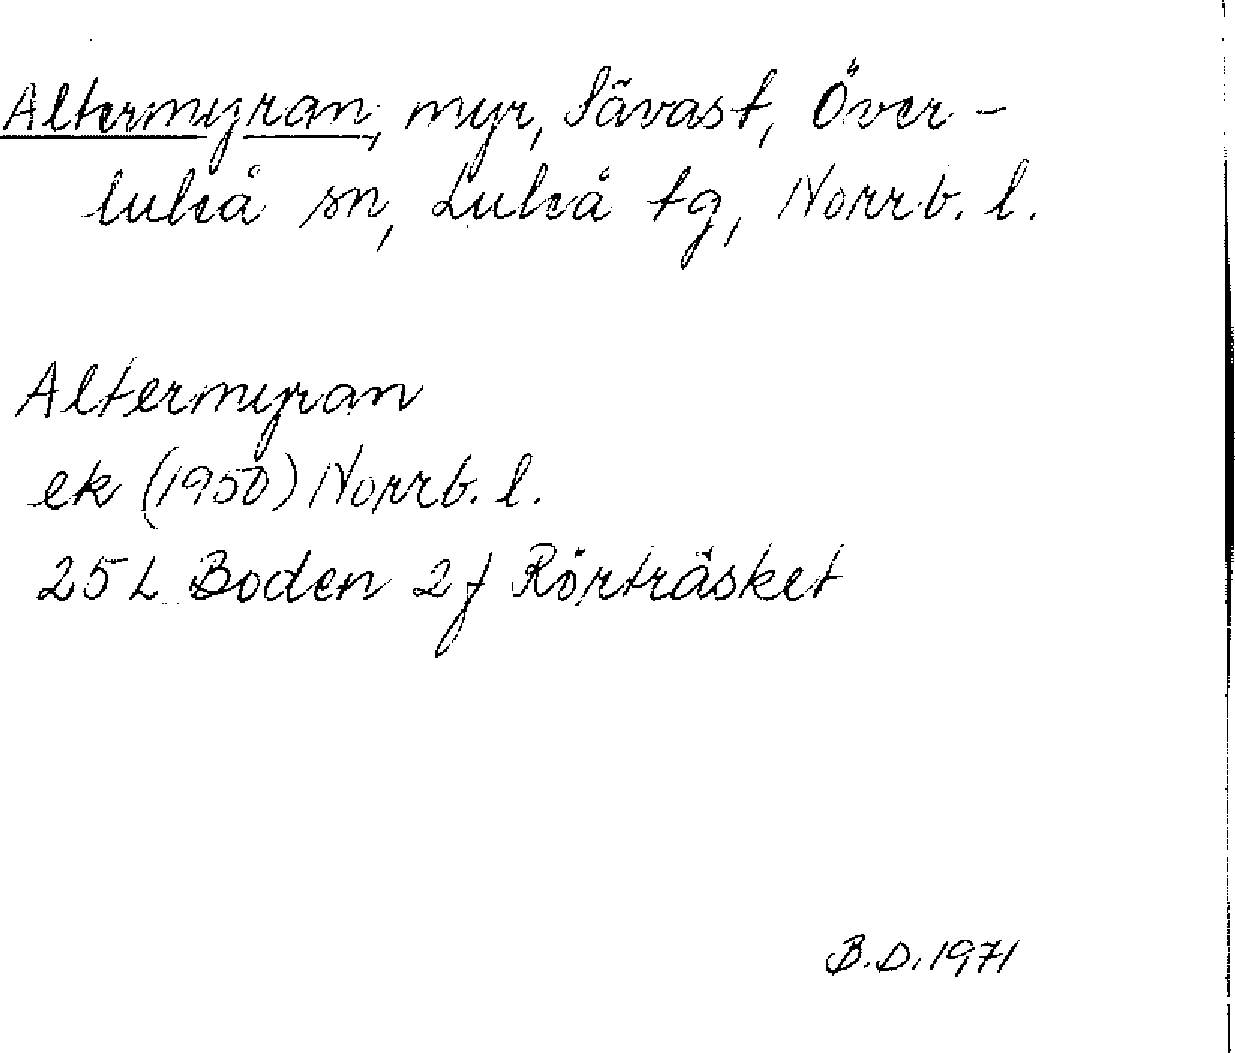 Altermyran, myr, Sävast, Över-
luleå sn, Luleå tg, Norrb. l.
Altermyran
ek (1950) Norrb. l.
25 L Boden 2 f Rörträsket
B.D. 1971